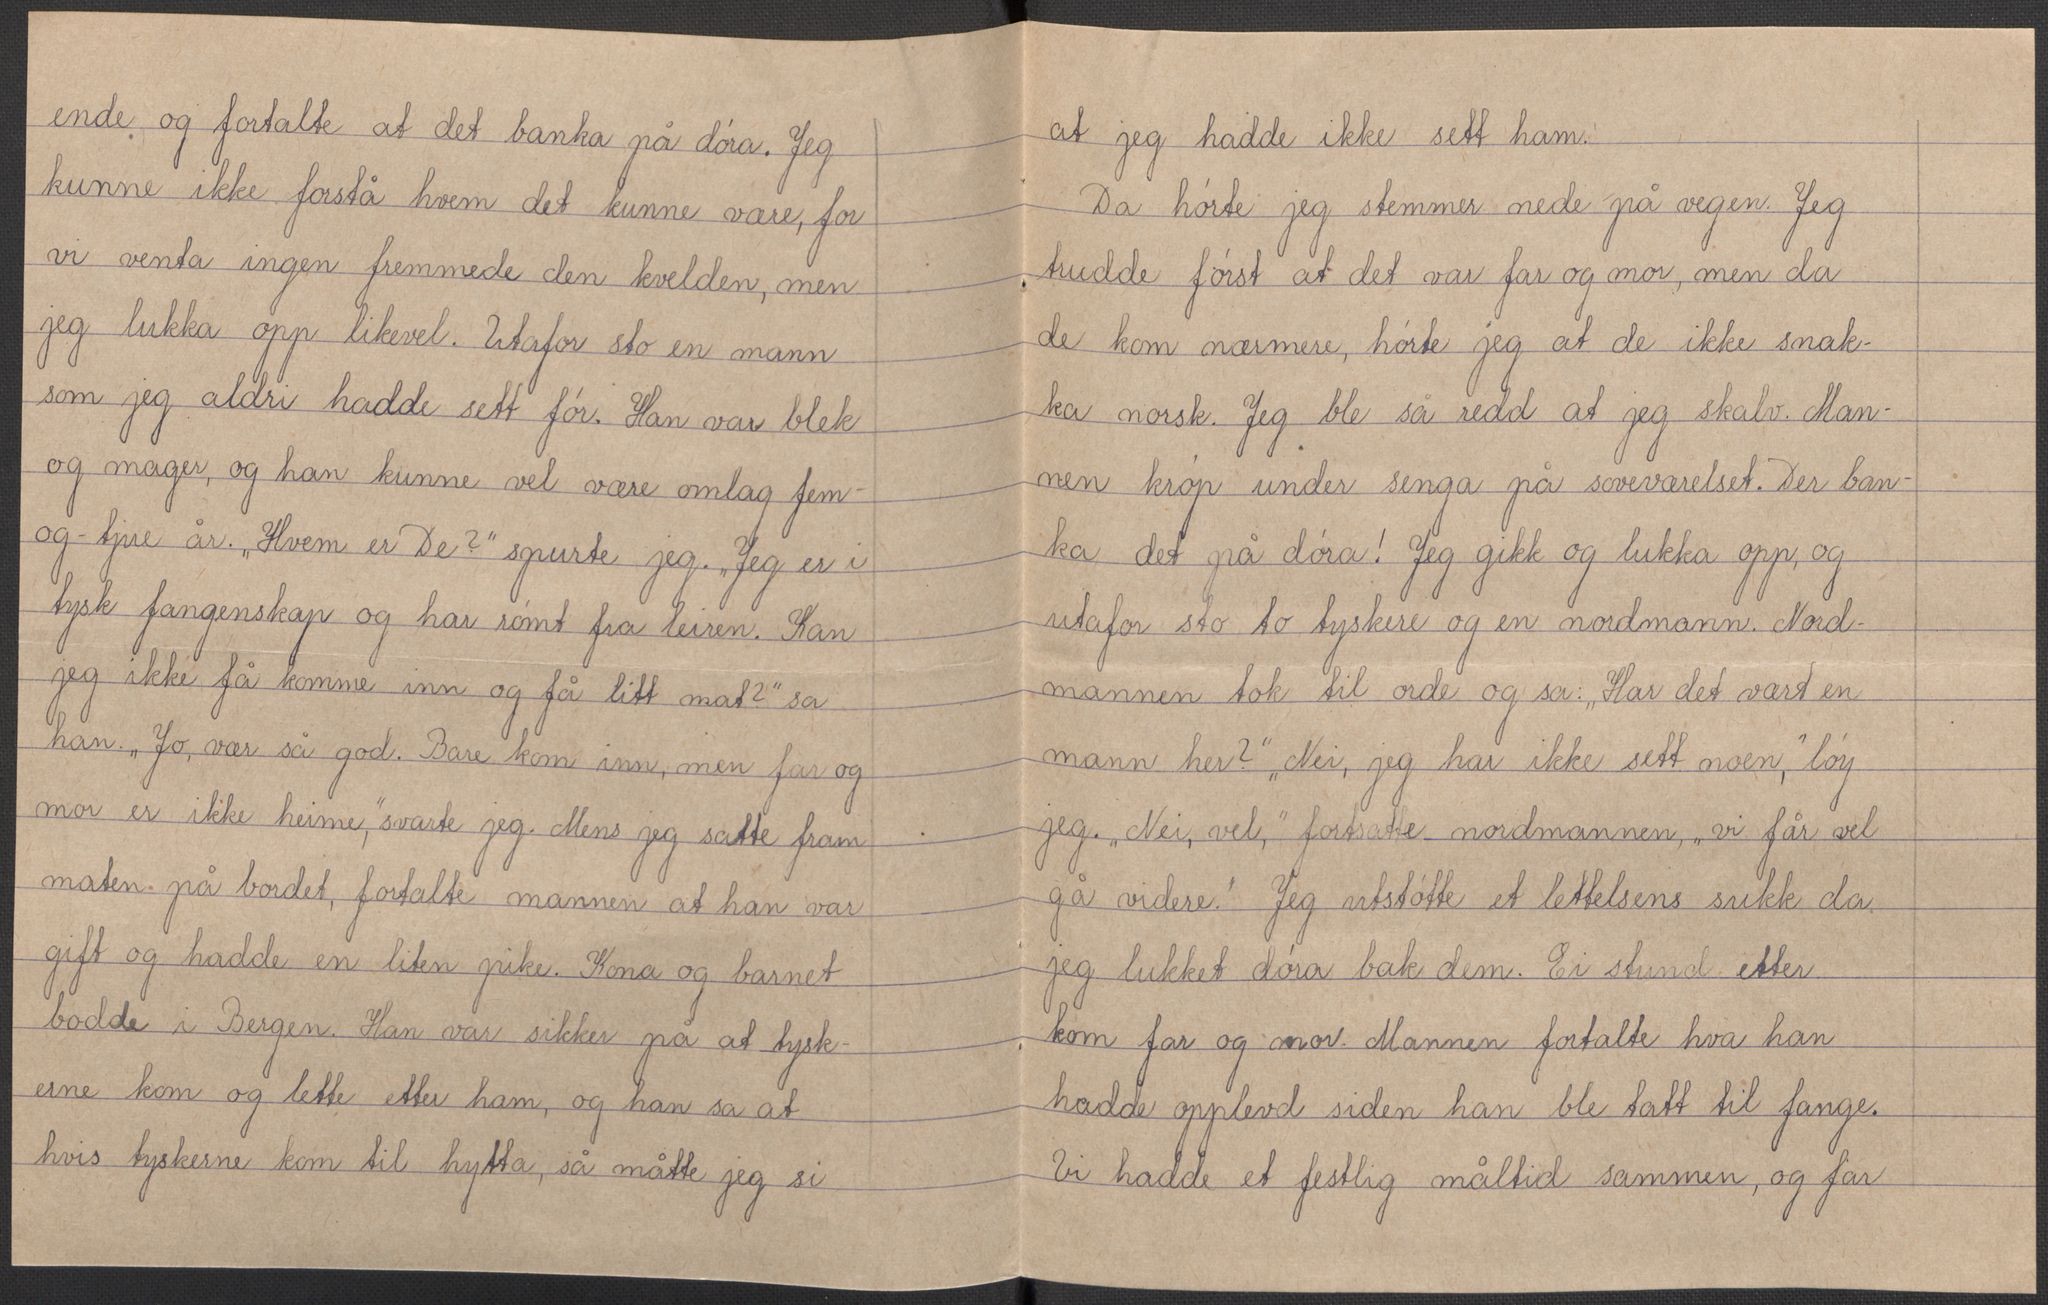 ende og fortalte at det banka på dóra. Jeg
kunne ikke forstå hvem det kunne være, for
vi venta ingen fremmede den kvelden, men
jeg lukka opp likevel. Utafor sto en mann
som jeg aldri hadde sett fór. Han var blek
og mager, og han kunne vel være omlag fem-
og-tjue år. „Hvem er De?" spurte jeg. „Jeg er i
tysk fangenskap og har rómt fra leiren. Kan
jeg ikke få komme inn og få litt mat?" sa
han. „Jo, vær så god. Bare kom inn, men far og
mor er ikke heime," svarte jeg. Mens jeg satte fram
maten på bordet, fortalte mannen at han var
gift og hadde en liten pike. Kona og barnet
bodde i Bergen. Han var sikker på at tysk-
erne kom og lette etter ham, og han sa at
hvis tyskerne kom til hytta, så måtte jeg si
at jeg hadde ikke sett ham.
Da hórte jeg stemmer nede på vegen. Jeg
trudde fórst at det var far og mor, men da
de kom nærmere, hórte jeg at de ikke snak-
ka norsk. Jeg ble så redd at jeg skalv. Man-
nen króp under senga på soveværelset. Der ban-
ka det på dóra! Jeg gikk og lukka opp, og
utafor sto to tyskere og en nordmann. Nord-
mannen tok til orde og sa: „Har det vært en
mann her?" „Nei, jeg har ikke sett noen," lóy
jeg. „Nei, vel," fortsatte nordmannen, „vi får vel
gå videre." Jeg utstótte et lettelsens sukk da
jeg lukket dóra bak dem. Ei stund etter
kom far og mor. Mannen fortalte hva han
hadde opplevd siden han ble tatt til fange.
Vi hadde et festlig måltid sammen, og far